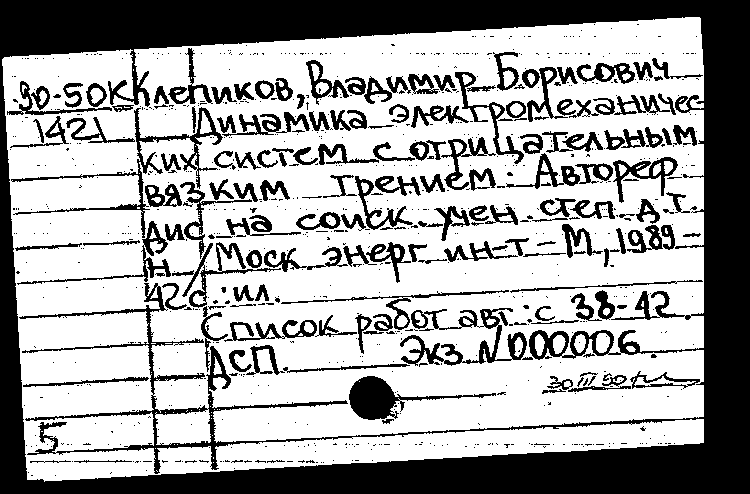 90-50К Клепиков, Владимир Борисович
1421 Динамика электромеханичес-
ких систем с отрицательным
вязким трением: Автореф.
дис. на соиск. учен. степ. д.т.
н / Моск. энерг. ин-т - М., 1989 -
42 с.: ил.
Список работ авт.: с 38-42.
ДСП. Экз. N000006.
30 III 90
5